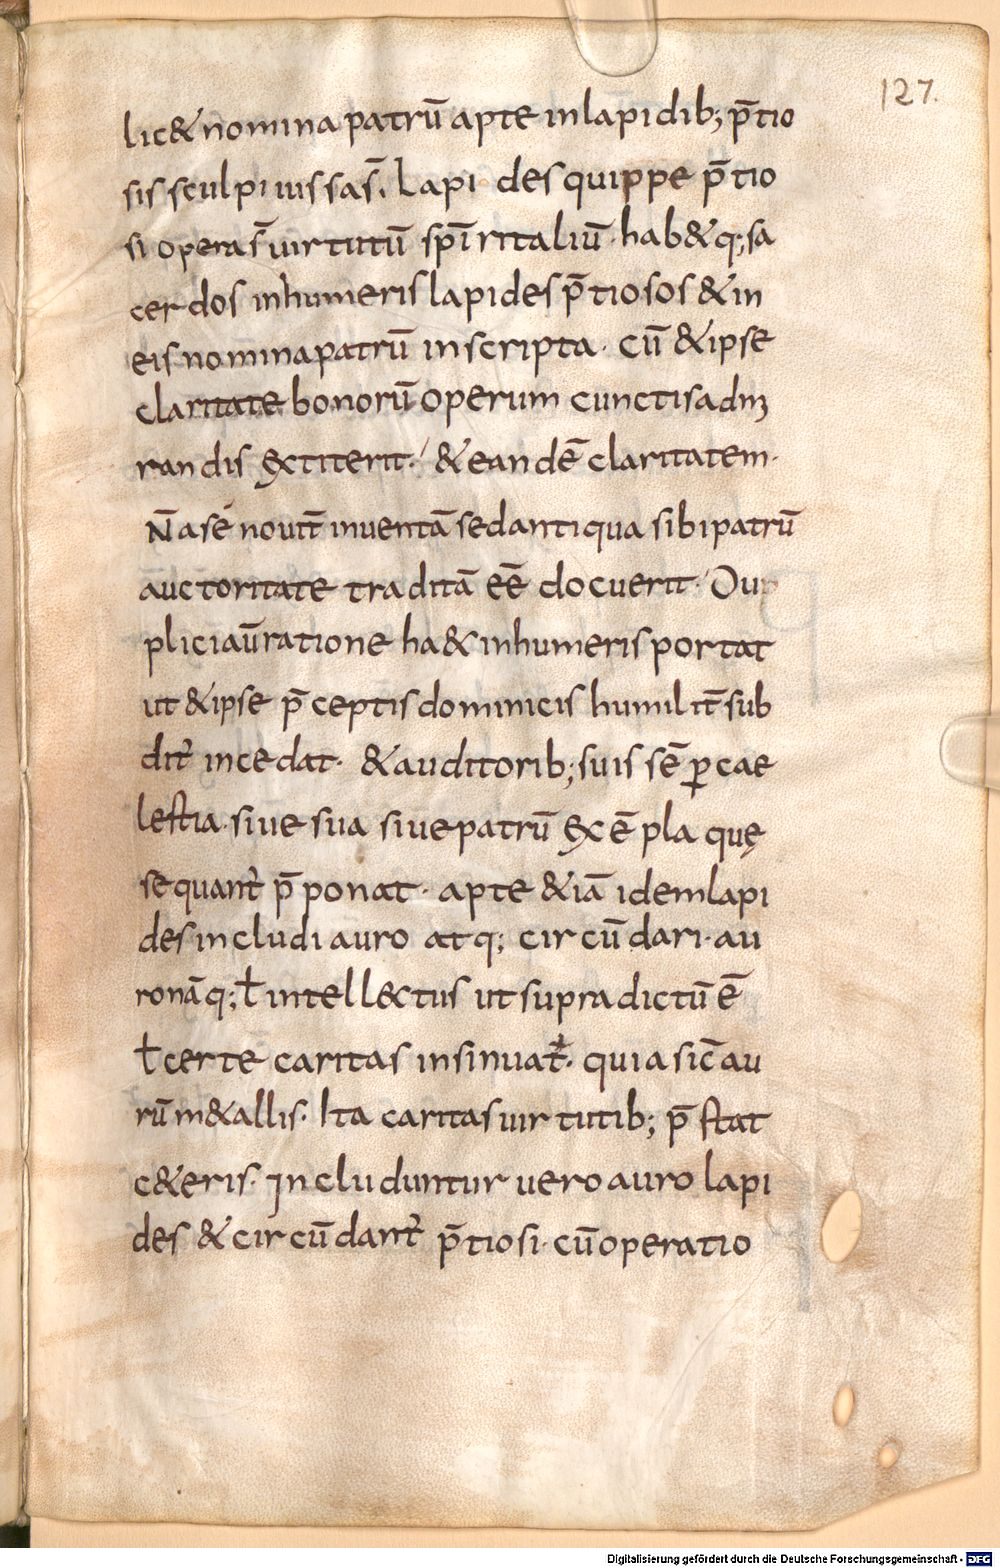 127.
lic& nomina patrū apte in lapidib; p̄tio
sis sculpi iussas̄. Lapides quippe p̄tio
si opera s̄ uirtutū sp̄iritaliū. hab& q; sa
cerdos in humeris lapides p̄tiosos & in
eis nomina patrū inscripta. Cū & ipse
claritate bonorū operum cunctis adm
randis extiterit. & eandē claritatem.
N̄ a sé nouit̄ inuentā sed antiqua sibi patrū
auctoritate traditā eē docuerit. Du
plici aū ratione ha& in humeris portat
ut & ipse p̄ceptis dominicis humilit̄ sub
dit' incedat. & auditorib; suis sēp cae
lestia. siue sua siue patrū exēpla quę
sequant' p̄ponat. apte & iā idem lapi
des includi auro atq; circūdari. au
ro nāq; ł intellectus ut supra dictū ē
ł certe caritas insinuat'. quia sic̄ au
rū m&allis. Ita caritas uirtutib; p̄stat
c&eris. Includuntur uero auro lapi
des & circūdant' p̄tiosi. cū operatio
Digitalisierung gefördert durch die Deutsche Forschungsgemeinschaft - DFG